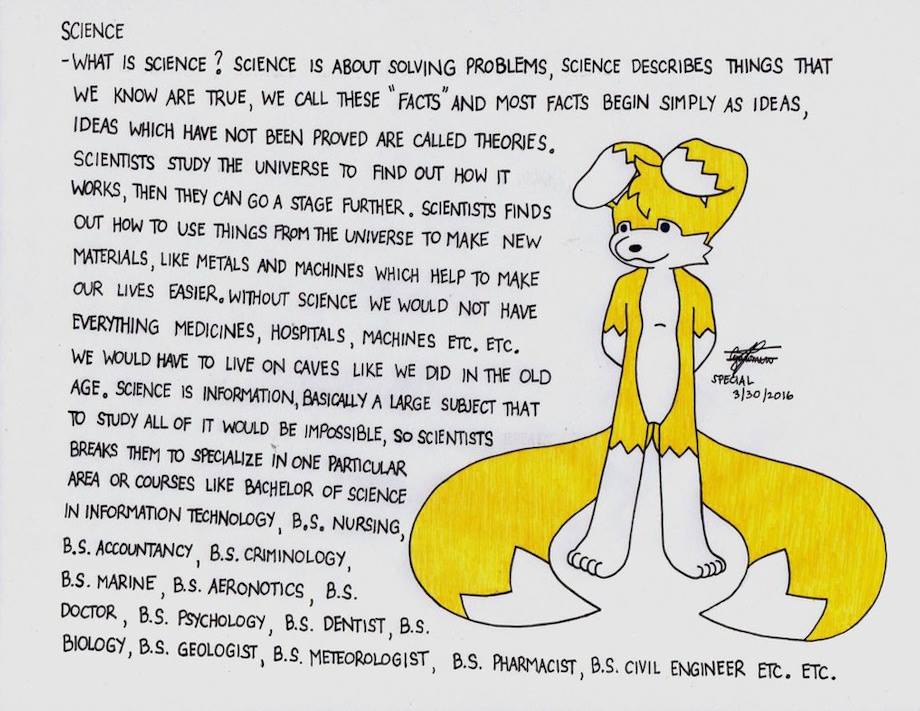 SCIENCE
-WHAT IS SCIENCE? SCIENCE IS ABOUT SOLVING PROBLEMS, SCIENCE DESCRIBES THINGS THAT
WE KNOW ARE TRUE, WE CALL THESE "FACTS" AND MOST FACTS BEGIN SIMPLY AS IDEAS,
IDEAS WHICH HAVE NOT BEEN PROVED ARE CALLED THEORIES.
SCIENTISTS STUDY THE UNIVERSE TO FIND OUT HOW IT
WORKS, THEN THEY CAN GO A STAGE FURTHER. SCIENTISTS FINDS
OUT HOW TO USE THINGS FROM THE UNIVERSE TO MAKE NEW
MATERIALS, LIKE METALS AND MACHINES WHICH HELP TO MAKE
OUR LIVES EASIER. WITHOUT SCIENCE WE WOULD NOT HAVE
EVERYTHING MEDICINES, HOSPITALS, MACHINES ETC. ETC.
WE WOULD HAVE TO LIVE ON CAVES LIKE WE DID IN THE OLD
AGE. SCIENCE IS INFORMATION, BASICALLY A LARGE SUBJECT THAT
TO STUDY ALL OF IT WOULD BE IMPOSSIBLE, SO SCIENTISTS
BREAKS THEM TO SPECIALIZE IN ONE PARTICULAR
AREA OR COURSES LIKE BACHELOR OF SCIENCE
IN INFORMATION TECHNOLOGY, B.S. NURSING,
B.S. ACCOUNTANCY, B.S. CRIMINOLOGY,
B.S. MARINE, B.S. AERONOTICS, B.S.
DOCTOR, B.S. PSYCHOLOGY, B.S. DENTIST, B.S.
BIOLOGY, B.S. GEOLOGIST, B.S. METEOROLOGIST, B.S. PHARMACIST, B.S. CIVIL ENGINEER ETC. ETC.
SPECIAL
3/30/2016